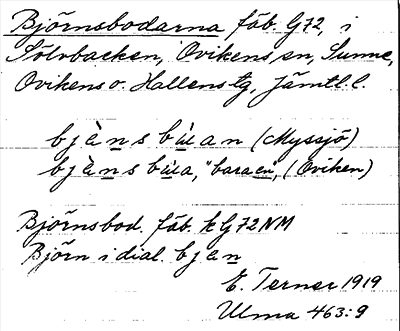 Björnsbodarna fäb. G72, i
Sölvbacken, Ovikens sn, Sunne,
Ovikens o. Hallens tg, Jämtl. l.
bjȁns bu̇an (Myssjö)
bjȁns bu̇a, "bara en", (Oviken)
Björnsbod. fäb. k G72 NM
Björn i dial. bjan
E. Terner 1919
Ulma 463:9